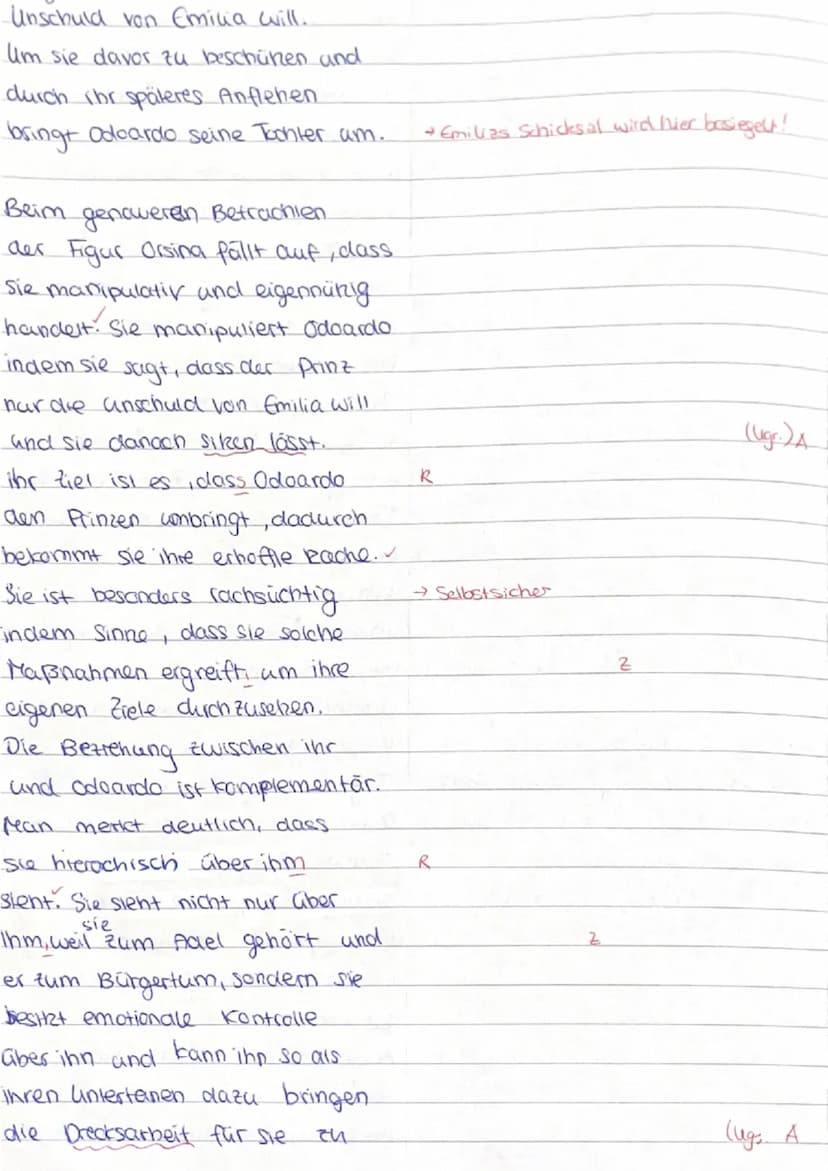 Unschuld von Emilia will.
Um sie davor zu beschützen und
durch ihr späteres Anflehen
bringt Odoardo seine Tochter um. → Emilias Schicksal wird hier besiegelt!
Beim genaueren Betrachten
der Figur Orsina fällt auf, dass
sie manipulativ und eigennützig
handelt. ✓ Sie manipuliert Odoardo
indem sie sagt, dass der Prinz
nur die Unschuld von Emilia will
und sie danach sitzen lässt. (ugs.) A
ihr Ziel ist es, dass Odoardo R
den Prinzen umbringt, dadurch
bekommt sie ihre erhoffte Rache. ✓
Sie ist besonders rachsüchtig → Selbstsicher
indem Sinne, dass sie solche
Maßnahmen ergreift, um ihre Z
eigenen Ziele durchzusetzen.
Die Beziehung zwischen ihr
und Odoardo ist komplementär.
Man merkt deutlich, dass
sie hierochisch über ihm R
steht. ✓ Sie steht nicht nur über
ihm, weil sie zum Adel gehört und Z
er zum Bürgertum, sondern sie
besitzt emotionale Kontrolle
über ihn und kann ihn so als
ihren Untertanen dazu bringen
die Drecksarbeit für sie zu (ugs. A